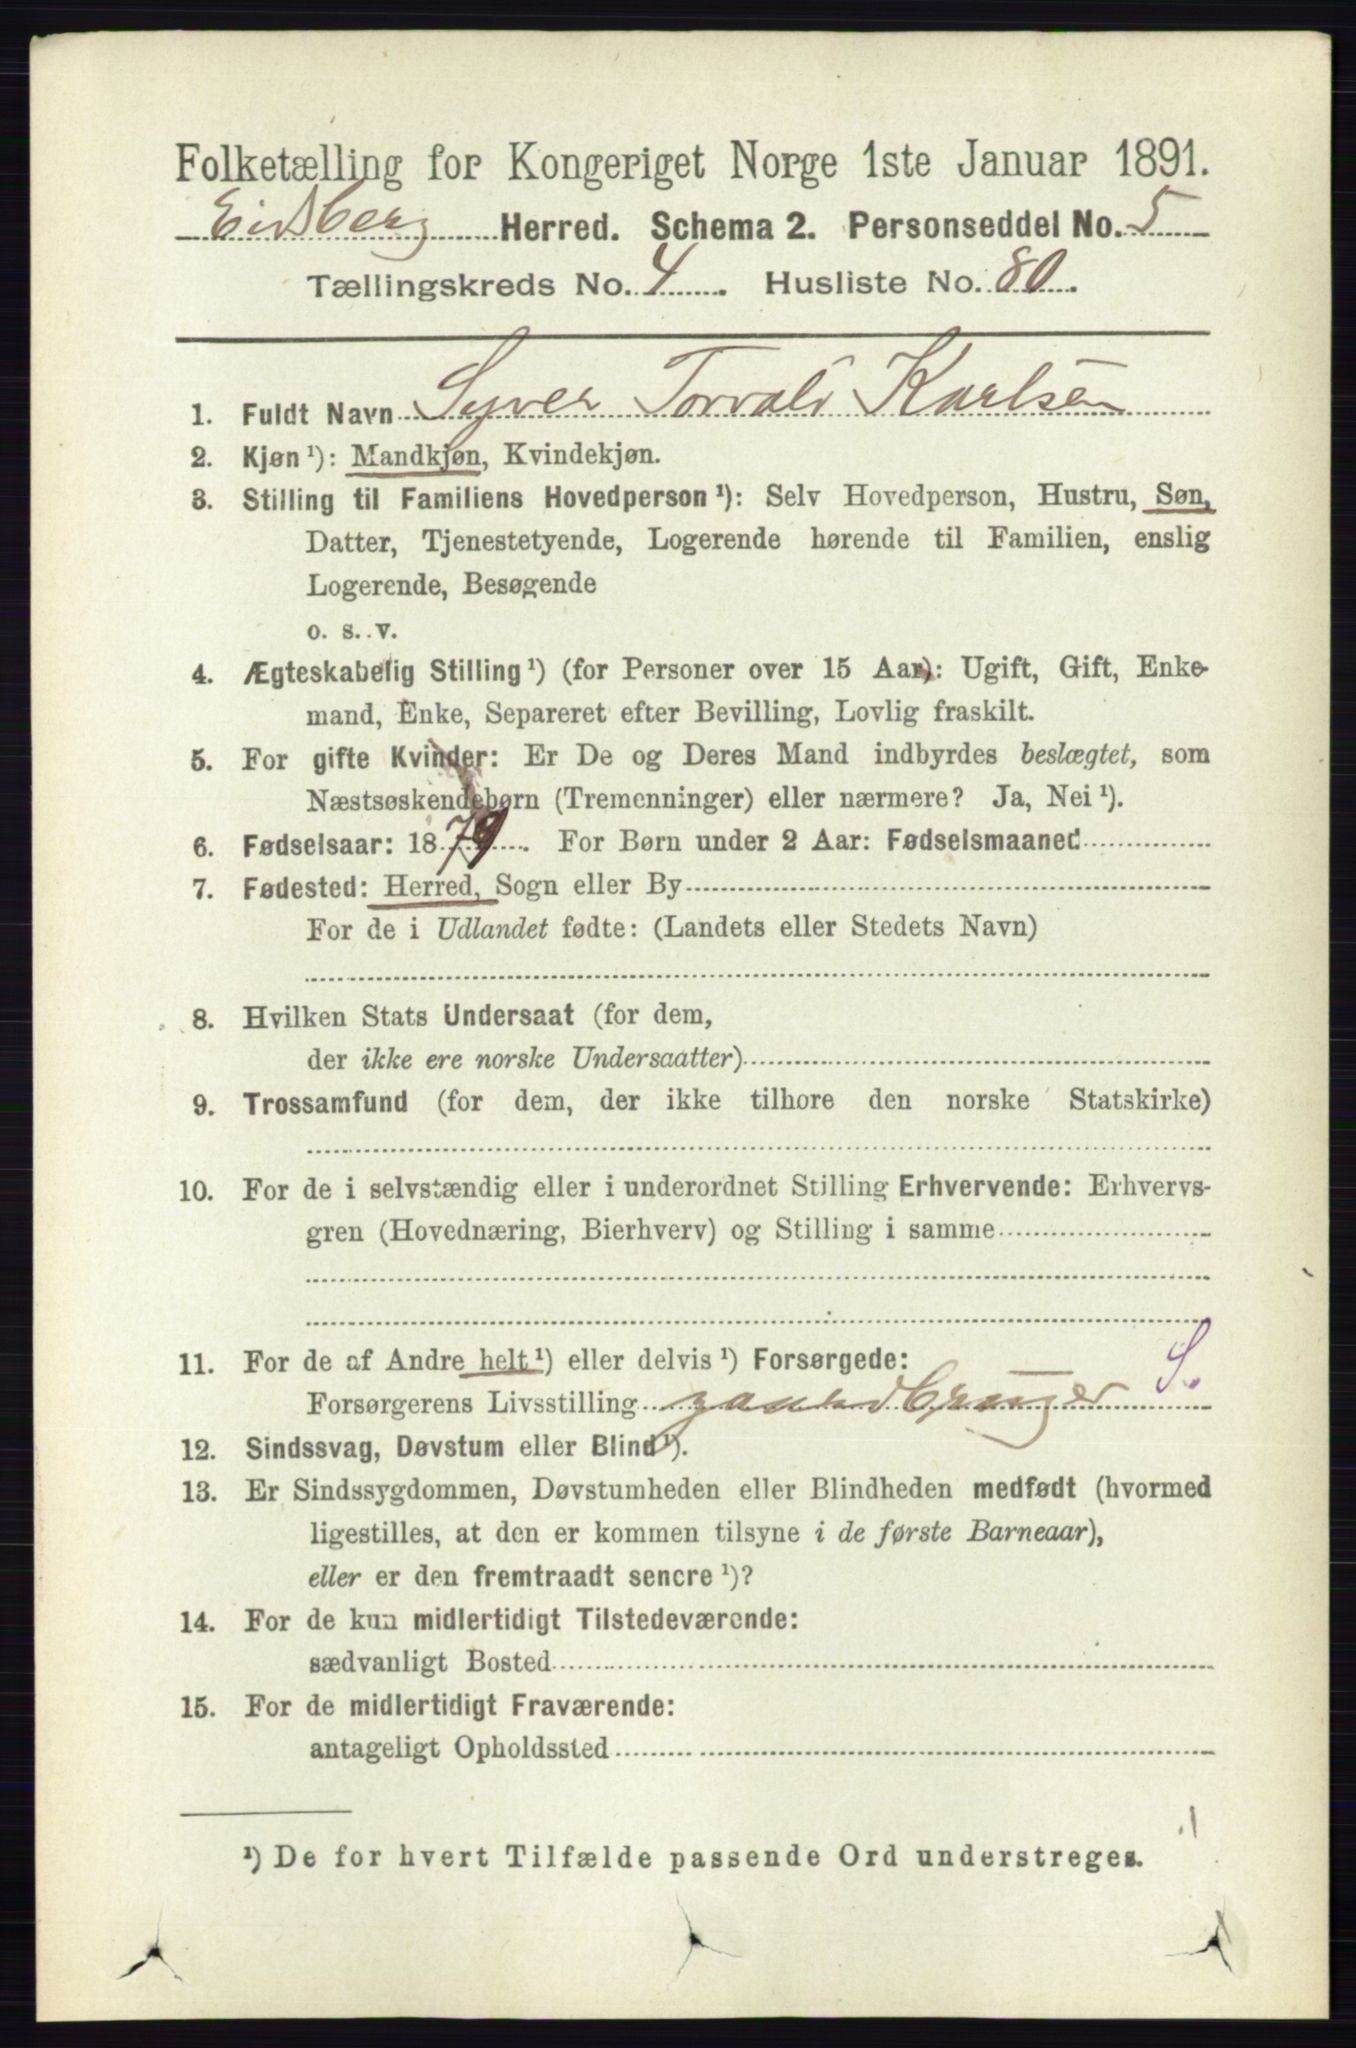 Folketælling for Kongeriget Norge 1ste Januar 1891.
Eidsberg Herred. Schema 2. Personseddel No. 5
Tællingskreds No. 4. Husliste No. 80.
1. Fuldt Navn Syver Torvald Karlsen
2. Kjøn ¹): Mandkjøn, Kvindekjøn.
3. Stilling til Familiens Hovedperson ¹): Selv Hovedperson, Hustru, Søn,
Datter, Tjenestetyende, Logerende hørende til Familien, enslig
Logerende, Besøgende
o. s. v.
4. Ægteskabelig Stilling ¹) (for Personer over 15 Aar): Ugift, Gift, Enke-
mand, Enke, Separeret efter Bevilling, Lovlig fraskilt.
5. For gifte Kvinder: Er De og Deres Mand indbyrdes beslægtet, som
Næstsøskendebørn (Tremenninger) eller nærmere? Ja, Nei ¹).
6. Fødselsaar: 1879. For Børn under 2 Aar: Fødselsmaaned
7. Fødested: Herred, Sogn eller By
For de i Udlandet fødte: (Landets eller Stedets Navn)
8. Hvilken Stats Undersaat (for dem,
der ikke ere norske Undersaatter)
9. Trossamfund (for dem, der ikke tilhøre den norske Statskirke)
10. For de i selvstændig eller i underordnet Stilling Erhvervende: Erhvervs-
gren (Hovednæring, Bierhverv) og Stilling i samme
11. For de af Andre helt ¹) eller delvis ¹) Forsørgede: S.
Forsørgerens Livsstilling gaardbruger
12. Sindssvag, Døvstum eller Blind ¹).
13. Er Sindssygdommen, Døvstumheden eller Blindheden medfødt (hvormed
ligestilles, at den er kommen tilsyne i de første Barneaar),
eller er den fremtraadt senere ¹)?
14. For de kun midlertidigt Tilstedeværende:
sædvanligt Bosted
15. For de midlertidigt Fraværende:
antageligt Opholdssted
¹) De for hvert Tilfælde passende Ord understreges.